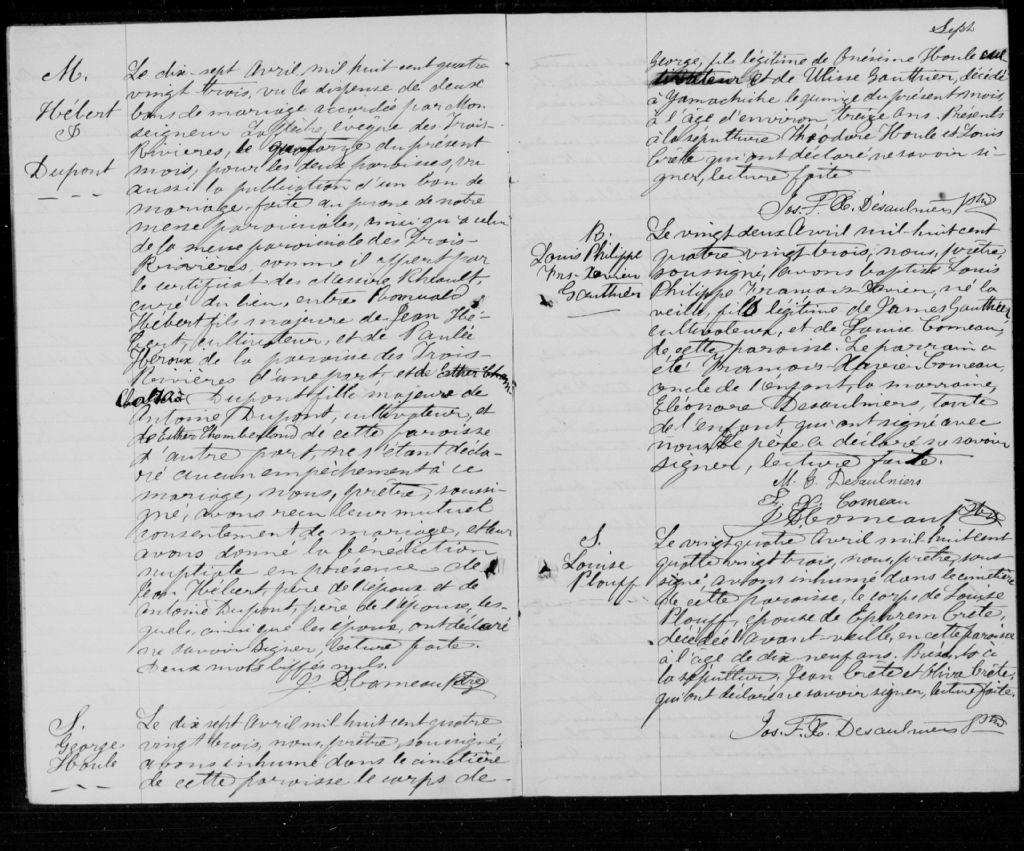 M.
Hébert
&
Dupont
Le dix-sept Avril mil huit cent quatre
vingt trois, vu la dispense de deux
bans de mariage accordée par Mon
seigneur Laflèche, évêque des Trois-
Rivières, le quatorze du présent
mois, pour les deux paroisses, vu
aussi la publication d'un ban de
mariage faite au prone de notre
messe paroissiale, ainsi qu'à celui
de la messe paroissiale des Trois-
Rivières, comme il appert par
le certificat de Messire Rheault,
curé du lieu, entre Romuald
Hébert fils majeur de Jean Hé-
bert, cultivateur, et de
Héroux de la paroisse des Trois-
Rivières d'une part, et de Esther Cham
Dupont fille majeure de
Antoine Dupont, cultivateur, et
de Esther Chamberland de cette paroisse
d'autre part, ne s'étant décla-
ré aucun empêchement à ce
mariage, nous, prêtre, soussi-
gné, avons reçu leur mutuel
consentement de mariage, et leur
avons donné la bénédiction
nuptiale en présence de
Jean Hébert, père de l'époux et de
Antoine Dupont, père de l'épouse, les-
quels, ainsi que les époux, ont déclaré
ne savoir signer, lecture faite.
Deux mots biffés nuls.
J. D. Comeau Ptre
S.
George
Houle
Le dix sept Avril mil huit cent quatre
vingt trois, nous, prêtre, soussigné,
avons inhumé dans le cimetière
de cette paroisse le corps de
Sept
George, fils légitime de Onésime Houle cul
tivateur et de Ulise Gauthier, décédé
à Yamachiche le quinze du présent mois,
à l'âge d'environ treize ans. Présents
à la sépulture Théodore Houle et Louis
Crête qui ont déclaré ne savoir si-
gner, lecture faite
Jos. F. X. Désaulniers Ptre
B.
Louis Philippe
Frs-Xavier
Gauthier
Le vingt deux Avril mil huit cent
quatre vingt trois, nous, prêtre,
soussigné, avons baptisé Louis
Philippe François Xavier, né la
veille, fils légitime de James Gauthier
cultivateur, et de Louise Comeau,
de cette paroisse. Le parrain a
été François-Xavier Comeau,
oncle de l'enfant, la marraine,
Eléonore Desaulniers, tante
de l'enfant qui ont signé avec
nous. Le père a déclaré ne savoir
signer, lecture faite.
M. E. Desaulniers
F. X. Comeau
J. D. Comeau Ptre
S.
Louise
Plouff
Le vingt quatre Avril mil huit cent
quatre vingt trois, nous, prêtre, sous-
signé, avons inhumé dans le cimetière
de cette paroisse, le corps de Louise
Plouff, épouse de Ephrem Crête,
décédée l'avant-veille, en cette paroisse
à l'âge de dix neuf ans. Présents à
la sépulture, Jean Crête et Oliva Crête,
qui ont déclaré ne savoir signer, lecture faite,
Jos. F. X. Desaulniers Ptre